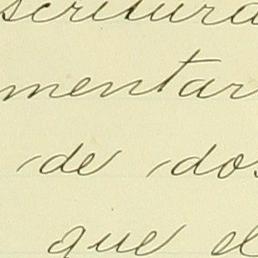 scritura
mentar
de dos
que el